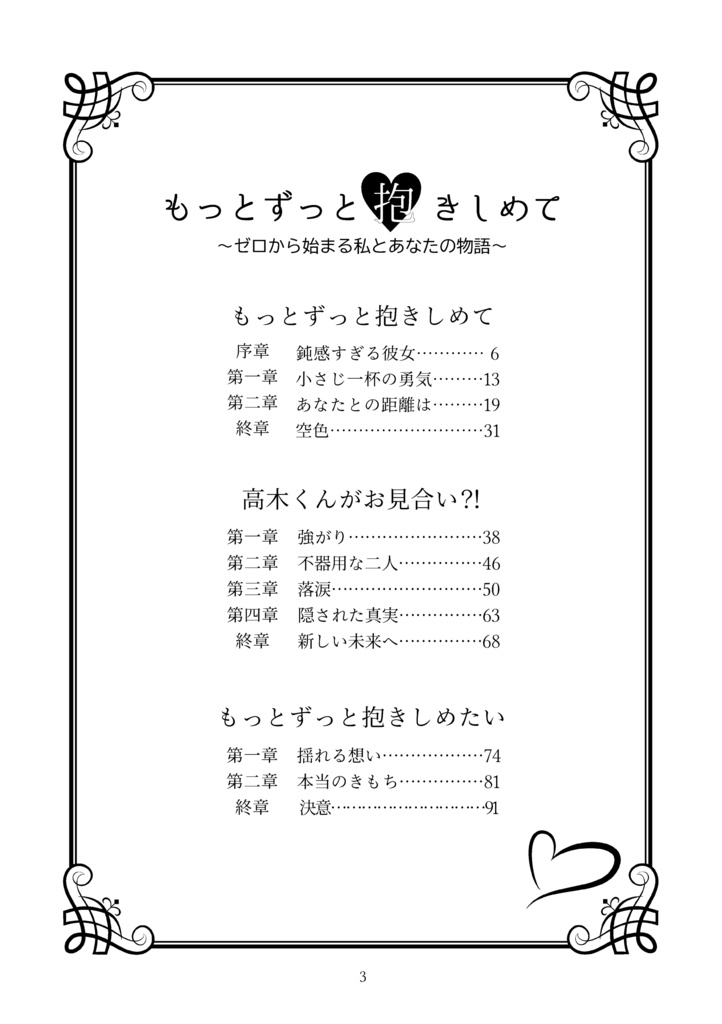 もっとずっと抱きしめて
～ゼロから始まる私とあなたの物語～
もっとずっと抱きしめて
序章 鈍感すぎる彼女………… 6
第一章 小さじ一杯の勇気………13
第二章 あなたとの距離は………19
終章 空色………………………31
高木くんがお見合い?!
第一章 強がり……………………38
第二章 不器用な二人……………46
第三章 落涙………………………50
第四章 隠された真実……………63
終章 新しい未来へ……………68
もっとずっと抱きしめたい
第一章 揺れる想い………………74
第二章 本当のきもち……………81
終章 決意…………………………91
3